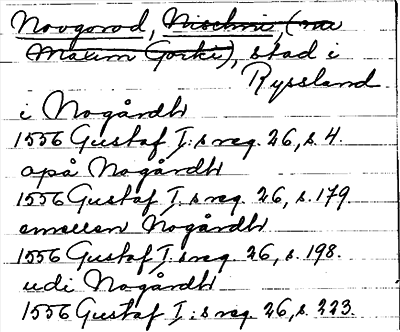 Novgorod, Nischni, (nu
Maxim Gorki), stad i
Ryssland
i Nogårdh
1556 Gustaf I:s reg. 26, s. 4.
opå Nogårdh
1556 Gustaf I:s reg. 26, s. 179.
emellan Nogårdh
1556 Gustaf I:s reg. 26, s. 198.
udi Nogårdh
1556 Gustaf I:s reg. 26, s. 223.